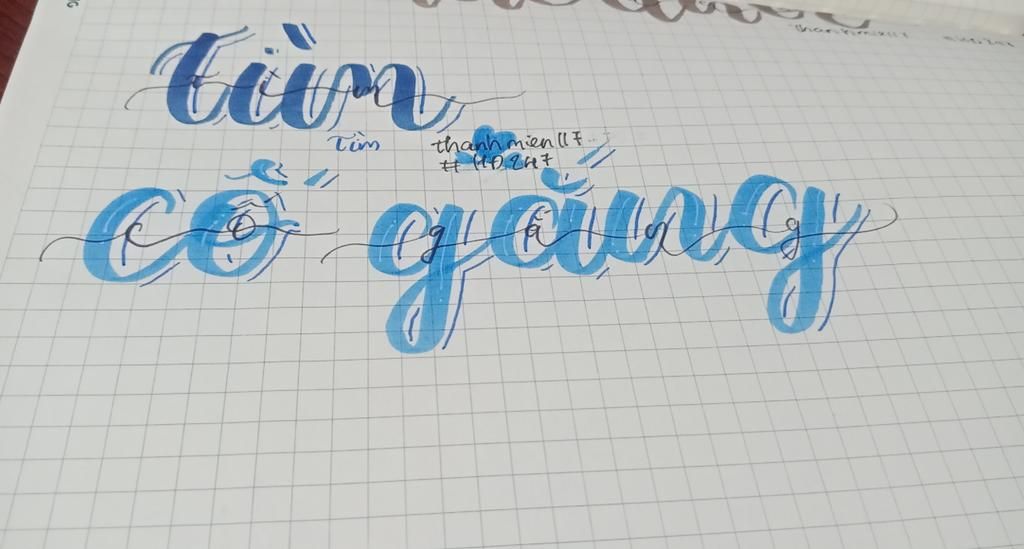 tìm
Tìm thanhmien117
cố gắng